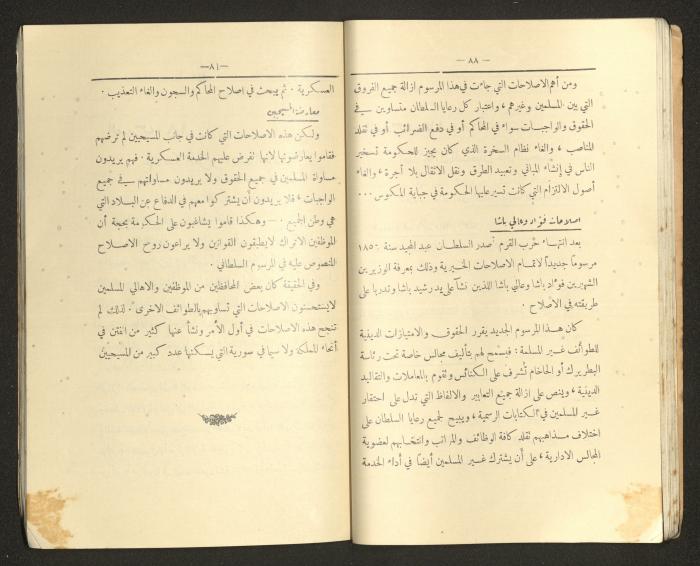 — ٨٨ —
ومن أهم الاصلاحات التي جاءت في هذا المرسوم ازالة جميع الفروق
التي بين المسلمين وغيرهم ، واعتبار كل رعايا السلطان متساوين في
الحقوق والواجبات سواء في المحاكم أو في دفع الضرائب أو في تقلد
المناصب ، والغاء نظام السخرة الذي كان يجيز للحكومة تسخير
الناس في إنشاء المباني وتعبيد الطرق ونقل الاثقال بلا أجرة ، والغاء
أصول الالتزام التي كانت تسير عليها الحكومة في جباية المكوس ...
اصلاحات فؤاد وعالي باشا
بعد انتهاء حرب القرم أصدر السلطان عبد المجيد سنة ١٨٥٠
مرسوماً جديداً لاتمام الاصلاحات الخيرية وذلك بمعرفة الوزيرين
الشهيرين فؤاد باشا وعالي باشا اللذين نشآ على يد رشيد باشا وتدربا على
طريقته في الاصلاح .
كان هذا المرسوم الجديد يقرر الحقوق والامتيازات الدينية
للطوائف غير المسلمة : فيسمح لهم بتأليف مجالس خاصة تحت رئاسة
البطريرك أو الحاخام تُشرف على الكنائس وتقوم بالمعاملات والتقاليد
الدينية ، وينص على ازالة جميع التعابير والالفاظ التي تدل على احتقار
غير المسلمين في الكتابات الرسمية ، ويبيح لجميع رعايا السلطان على
اختلاف مذاهبهم تقلد كافة الوظائف والمراتب وانتخابهم لعضوية
المجالس الادارية ، على أن يشترك غير المسلمين أيضاً في أداء الخدمة
— ٨٩ —
العسكرية . ثم يبحث في اصلاح المحاكم والسجون والغاء التعذيب .
معارضة المسيحيين
ولكن هذه الاصلاحات التي كانت في جانب المسيحيين لم ترضهم
فقاموا يعارضونها لأنها تفرض عليهم الخدمة العسكرية . فهم يريدون
مساواة المسلمين في جميع الحقوق ولا يريدون مساواتهم في جميع
الواجبات ، فلا يريدون أن يشتركوا معهم في الدفاع عن البلاد التي
هي وطن الجميع . — وهكذا قاموا يشاغبون على الحكومة بحجة أن
الموظفين الاتراك لا يطبقون القوانين ولا يراعون روح الاصلاح
المنصوص عليه في المرسوم السلطاني .
وفي الحقيقة كان بعض المحافظين من الموظفين والاهالي المسلمين
لا يستحسنون الاصلاحات التي تساويهم بالطوائف الاخرى . لذلك لم
تنجح هذه الاصلاحات في أول الأمر ونشأ عنها كثير من الفتن في
أنحاء المملكة ولا سيما في سورية التي يسكنها عدد كبير من المسيحيين